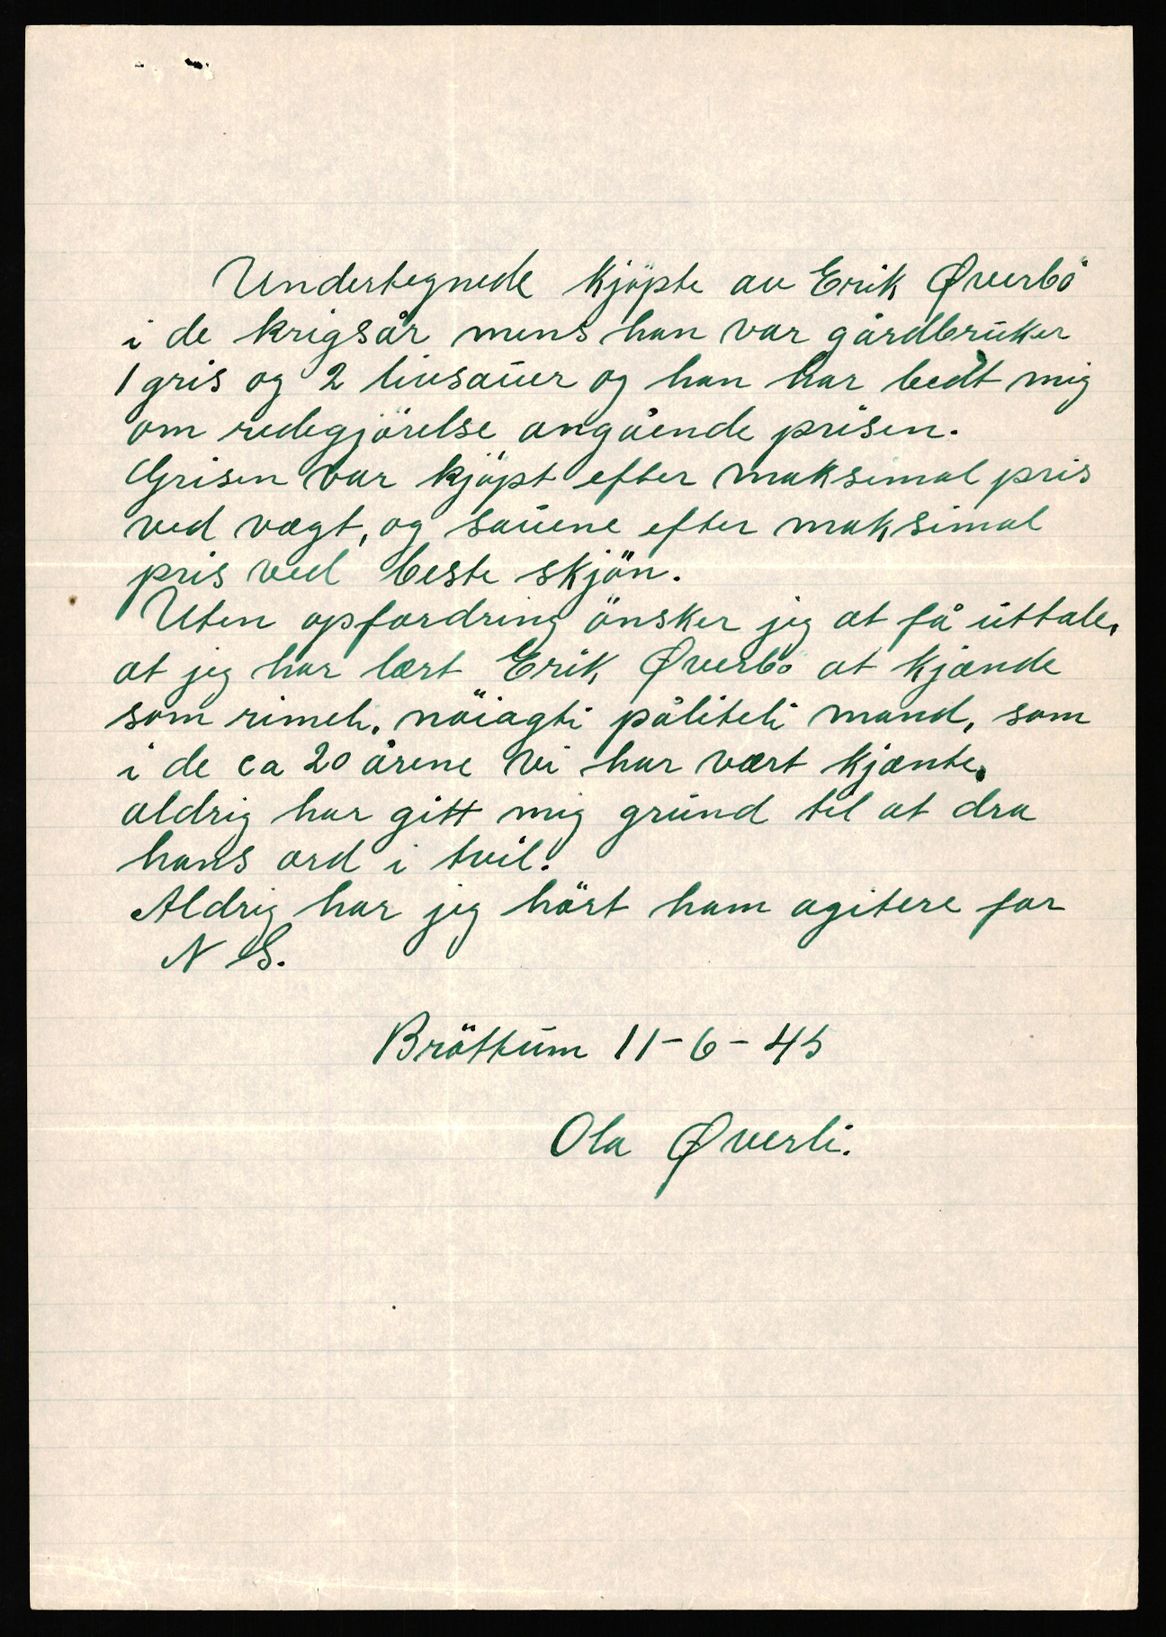 Undertegnede kjöpte av Erik Øverbö
i de krigsår mens han var gårdbruker
1 gris og 2 livsauer og han har bedt mig
om redegjörelse angående prisen.
Grisen var kjöpt efter maksimal pris
ved vægt, og sauene efter maksimal
pris ved beste skjön.
Uten opfordring önsker jeg at få uttale,
at jeg har lært Erik Øverbö at kjænde
som rimeli, nöiagti påliteli mand, som
i de ca 20 årene vi har vært kjænte,
aldrig har gitt mig grund til at dra
hans ord i tvil.
Aldrig har jeg hört ham agitere for
N S.
Bröttum 11-6-45
Ola Øverli.